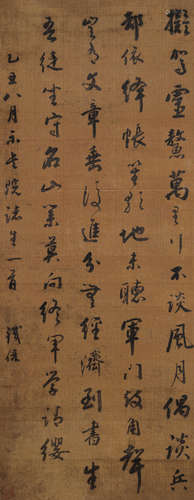 擬駕靈鰲萬里行不談風月偶談兵
却依絳帳笙歌地未聽軍門鼓角聲
豈有文章垂後進分無經濟到書生
吾徒坐守名山業莫向終軍学請纓
乙丑八月示書院諸生一首 鐵保